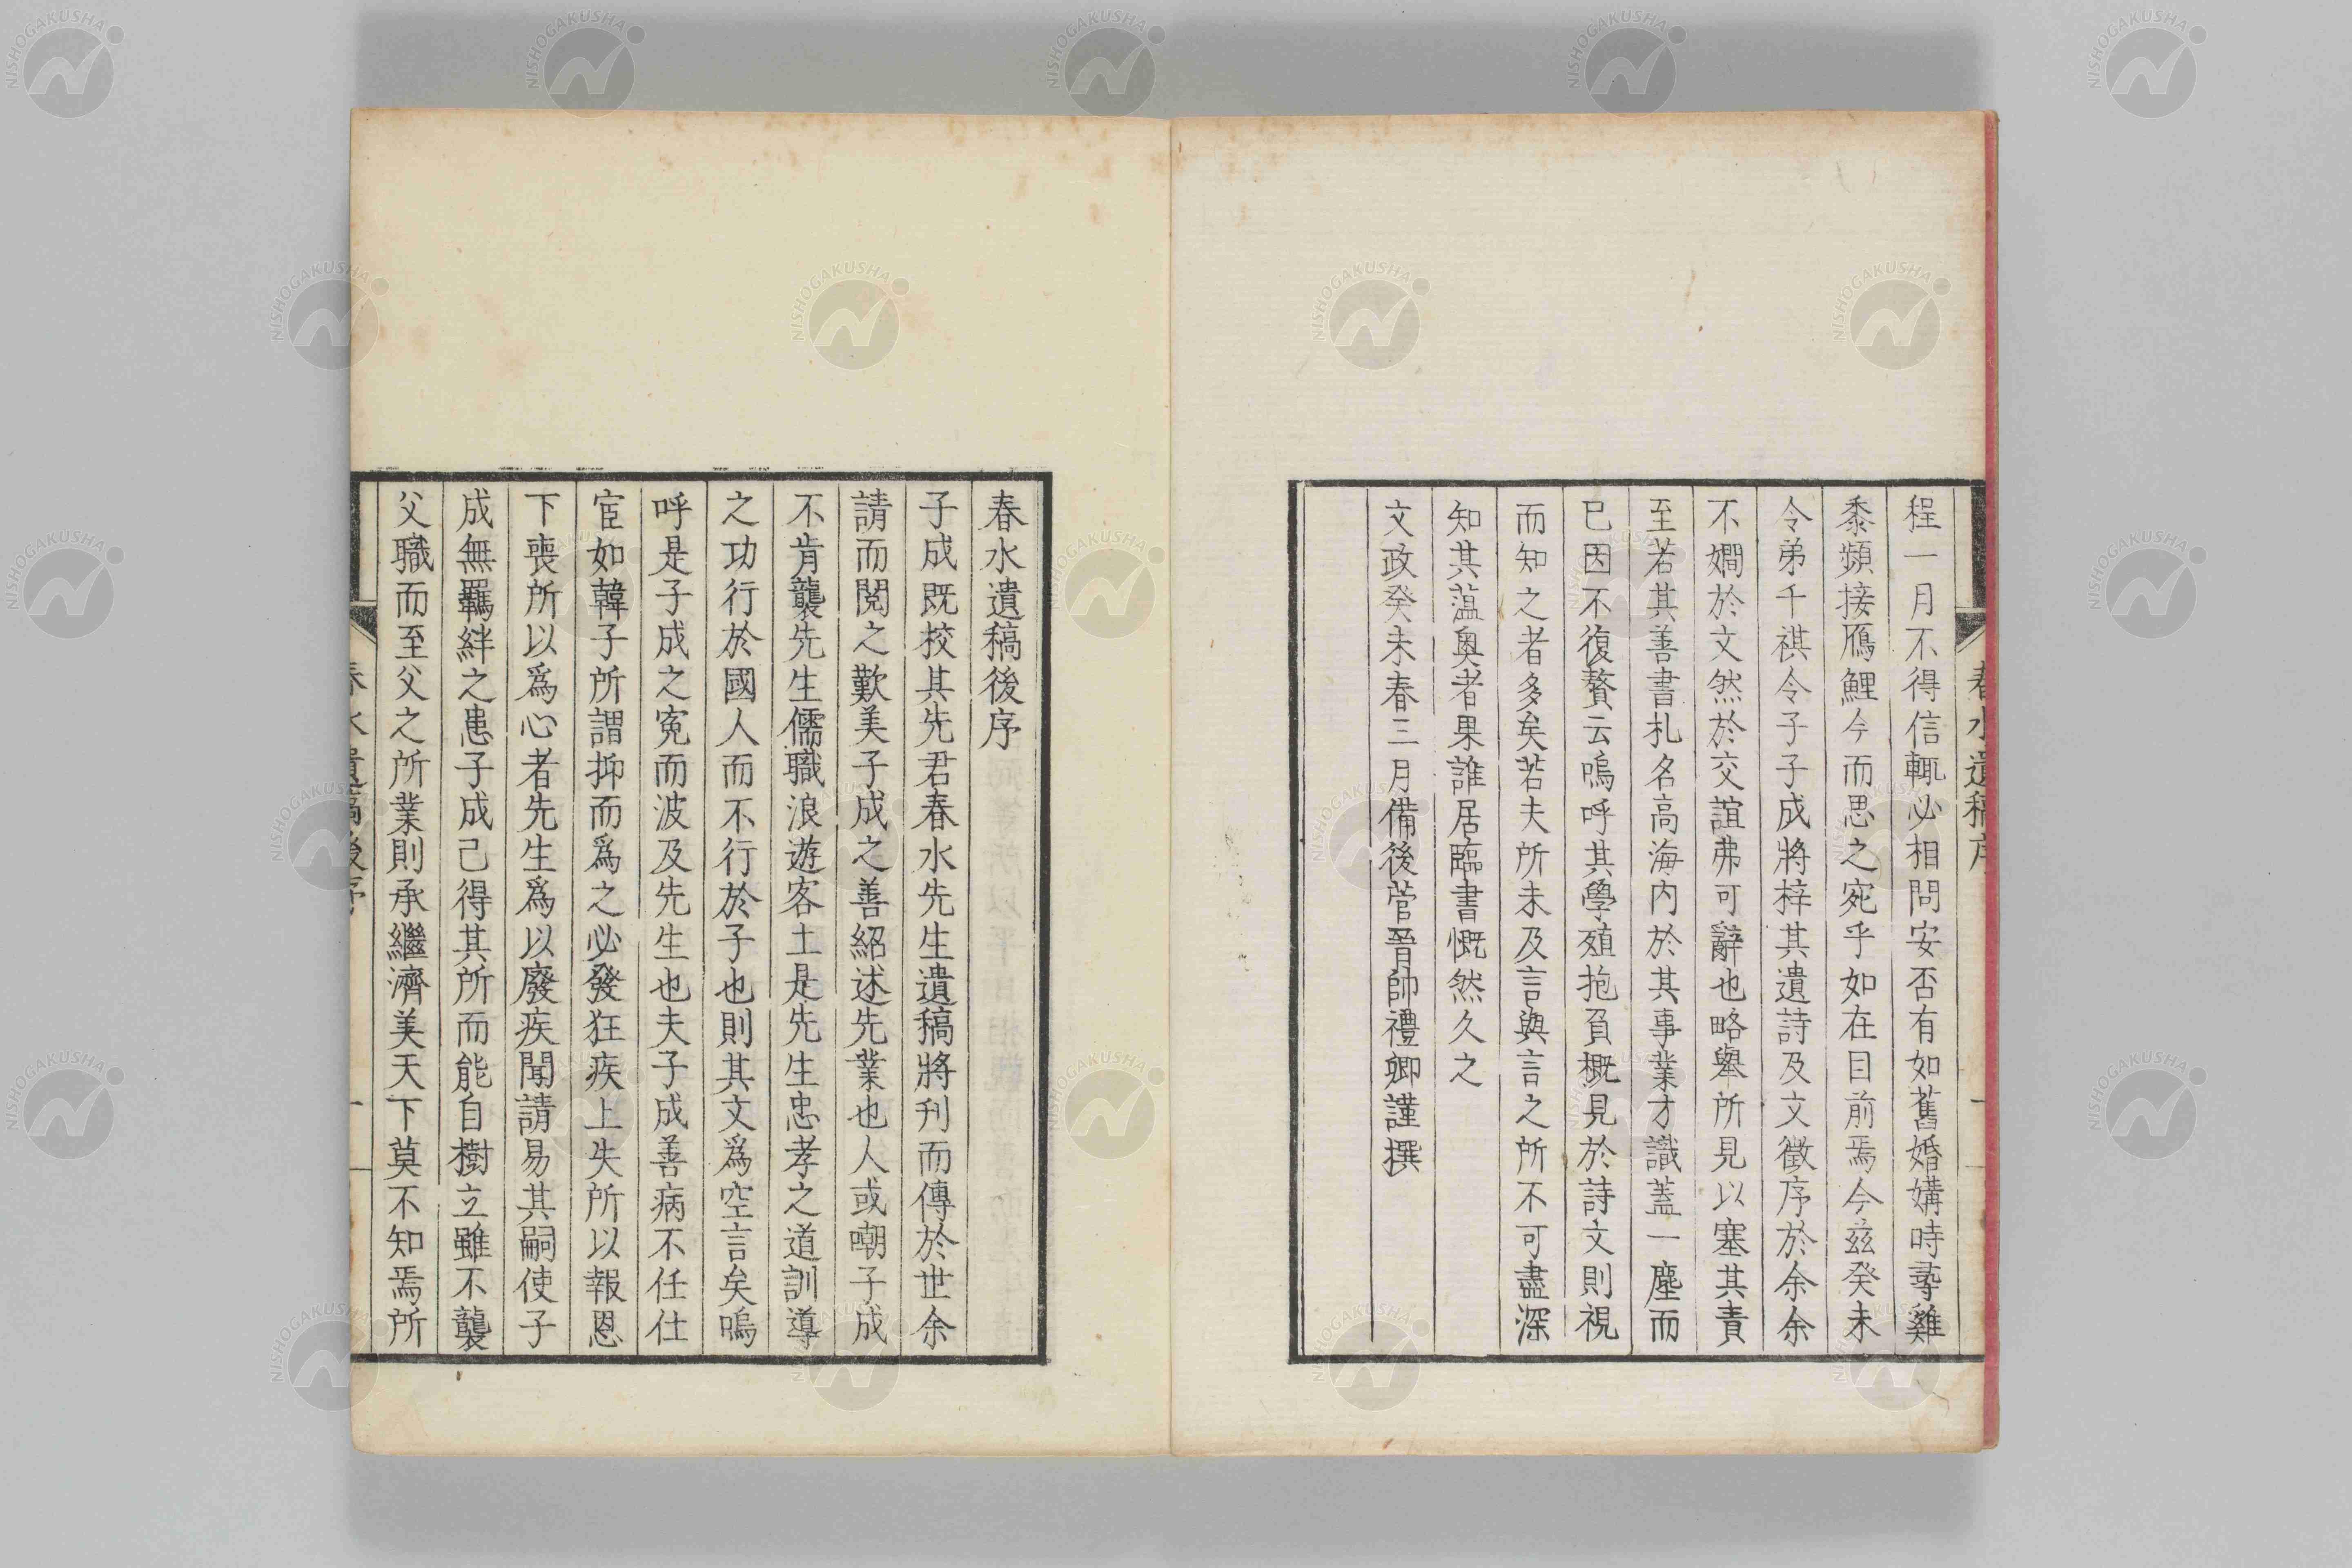 春水遺稿序
程一月不得信輒必相問安否有如舊婚媾時尋雞
黍頻接鴈鯉今而思之宛乎如在目前焉今茲癸未
令弟千祺令子子成將梓其遺詩及文徵序於余余
不嫺於文然於交誼弗可辭也略舉所見以塞其責
至若其善書札名高海内於其事業才識蓋一塵而
已因不復贅云嗚呼其學殖抱負概見於詩文則視
而知之者多矣若夫所未及言與言之所不可盡深
知其薀奥者果誰居臨書慨然久之
文政癸未春三月備後菅晉帥禮卿謹撰
春水遺稿後序
子成既校其先君春水先生遺稿將刊而傳於世余
請而閲之歎美子成之善紹述先業也人或嘲子成
不肯襲先生儒職浪遊客土是先生忠孝之道訓導
之功行於國人而不行於子也則其文爲空言矣嗚
呼是子成之寃而波及先生也夫子成善病不任仕
宦如韓子所謂抑而爲之必發狂疾上失所以報恩
下喪所以爲心者先生爲以廢疾聞請易其嗣使子
成無羈絆之患子成己得其所而能自樹立雖不襲
父職而至父之所業則承繼濟美天下莫不知焉所
春水遺稿後序 一
NISHOGAKUSHA